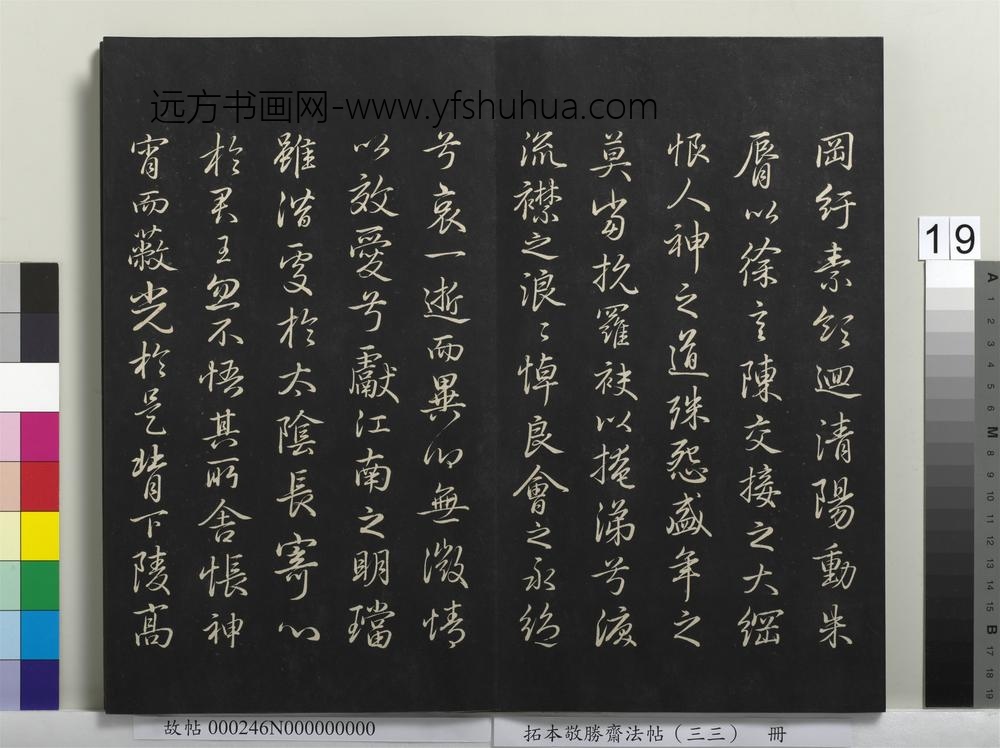 远方书画网-www.yfshuhua.com
岡紆素領迴清陽動朱
脣以徐言陳交接之大綱
恨人神之道殊怨盛年之
莫當抗羅袂以掩涕兮淚
流襟之浪〻悼良會之永絕
兮哀一逝而異鄉無微情
以效愛兮獻江南之明璫
雖潛處於太陰長寄心
於君王忽不悟其所舍悵神
宵而蔽光於是背下陵高
19
A 1 2 3 4 5 6 M 8 9 10 11 12 13 14 15 B 17 18 19
故帖 000246N000000000
拓本敬勝齋法帖（三三） 冊